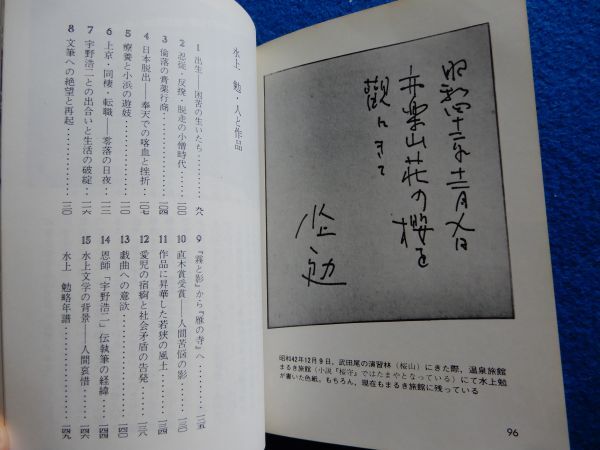 昭和四十二年十二月九日
亦楽山荘の櫻を
観にきて
水上勉
昭和42年12月9日，武田尾の演習林（桜山）にきた際，温泉旅館
まるき旅館（小説『桜守』ではたまやとなっている）にて水上勉
が書いた色紙。もちろん，現在もまるき旅館に残っている
96
水上 勉・人と作品
1 出生――困苦の生いたち………九八
2 忍従・反撥・脱走の小僧時代………一〇一
3 倫落の営業行商………一〇四
4 日本脱出――奉天での喀血と挫折………一〇七
5 療養と小浜の遊妓………一一〇
6 上京・同棲・転職――零落の日夜………一一三
7 宇野浩二との出合いと生活の破綻………一一六
8 文筆への絶望と再起………一二〇
9 『霧と影』から『雁の寺』へ………一二五
10 直木賞受賞――人間苦悩の影………一三〇
11 作品に昇華した若狭の風土………一三三
12 愛児の宿痾と社会矛盾の告発………一三六
13 戯曲への意欲………一四〇
14 恩師「宇野浩二」伝執筆の経緯………一四三
15 水上文学の背景――人間哀惜………一四六
水上 勉略年譜………一四九